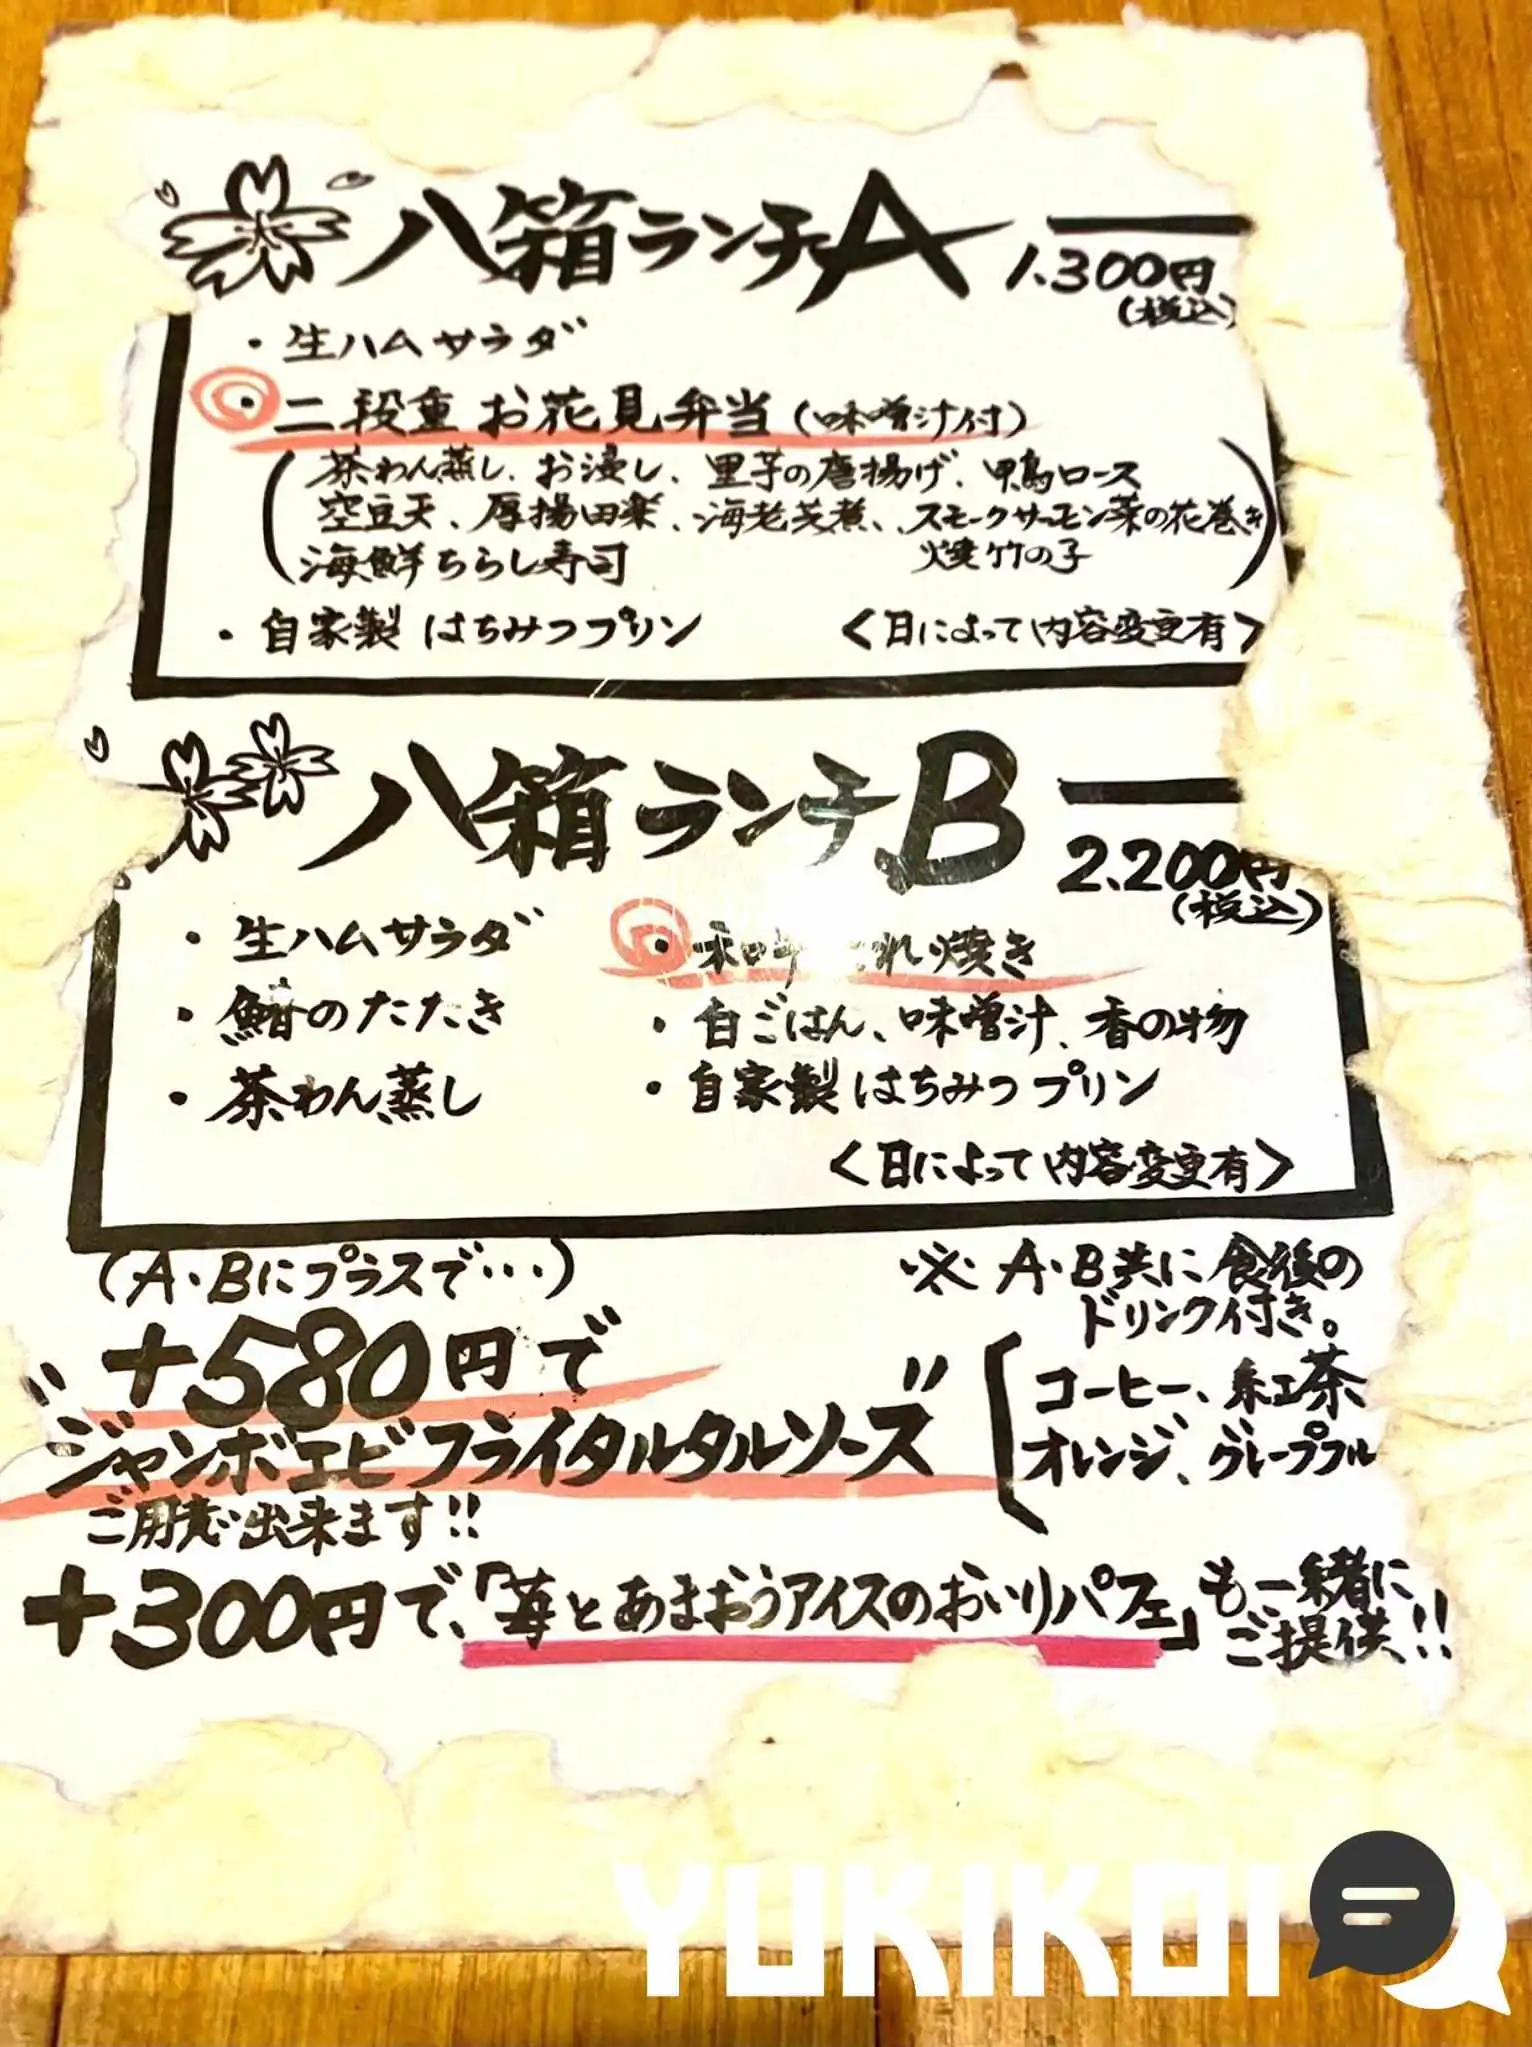 八箱ランチA
1,300円
(税込)
・生ハムサラダ
・二段重 お花見弁当(味噌汁付)
茶わん蒸し、お浸し、里芋の唐揚げ、鴨ロース
空豆天、厚揚田楽、海老芝煮、スモークサーモン菜の花巻き
海鮮ちらし寿司 焼竹の子
・自家製はちみつプリン <日によって内容変更有>
八箱ランチB
2,200円
(税込)
・生ハムサラダ
・鰆のたたき
・茶わん蒸し
・和牛 れ焼き
・白ごはん、味噌汁、香の物
・自家製はちみつプリン
<日によって内容変更有>
(A・Bにプラスで…)
+580円で
"ジャンボエビフライタルタルソース"
ご用意出来ます!!
※A・B共に食後の
ドリンク付き。
コーヒー、紅茶
オレンジ、グレープフル
+300円で、「苺とあまおうアイスのおいりパフェ」も一緒に
ご提供!!
YUKIKOI